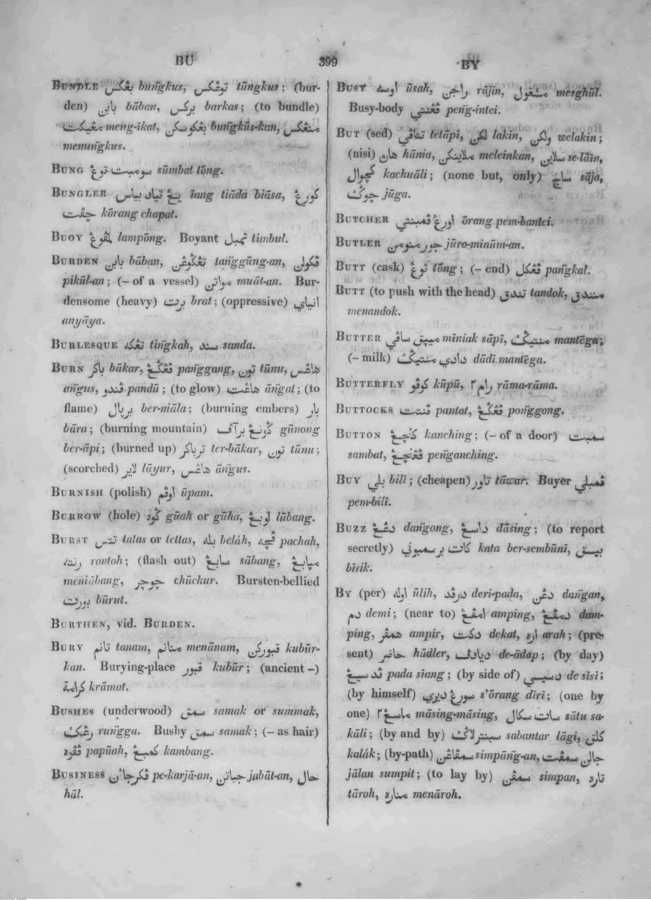 BU 399 BY
BUNDLE بڠكس bung̃kus, توڠكس tūng̃kus; (bur-
den) بابن bāban, بركس barkas; (to bundle)
مڠيكت meng-īkat, بڠكوسكن bung̃kūs-kan, منڠكس
memung̃kus.
BUNG سومبت توڠ sūmbat tōng.
BUNGLER يڠ تياد بياس īang tiāda biāsa, كورڠ
چفت kōrang chapat.
BUOY لمڤوڠ lampōng. Boyant تمبل timbul.
BURDEN بابن bāban, تڠگوڠن tang̃gūng-an, ڤكولن
pikūl-an; (– of a vessel) مواتن muāt-an. Bur-
densome (heavy) برت brat; (oppressive) انياي
anyāya.
BURLESQUE تڠكه ting̃kah, سند sanda.
BURN باكر bākar, ڤڠگڠ pang̃gang, تون tūnu, هاڠس
āng̃us, ڤندو pandū; (to glow) هاڠت āng̃at; (to
flame) برپال ber-nīāla; (burning embers) بار
bāra; (burning mountain) ڬونڠ براڤي gūnong
ber-āpi; (burned up) تر باكر ter-bākar, تون tūnu;
(scorched) لاير lāyur, هاڠس āng̃us.
BURNISH (polish) اوڤم ūpam.
BURROW (hole) ڬوه gūah or gūha, لوبڠ lūbang.
BURST تتس tatas or tettas, بله belah, ڤچه pachah,
رنته rontoh; (flash out) سابڠ sābang, مپابڠ
meniābang, چوچر chūchur. Bursten-bellied
بورت būrut.
BURTHEN, vid. BURDEN.
BURY تانم tanam, منانم menānam, قبوركن kubūr-
kan. Burying-place قبور kubūr; (ancient –)
كرامة krāmat.
BUSHES (underwood) سمق samak or summak,
رڠگ rung̃ga. Bushy سمق samak; (– as hair)
ڤڤوه papūah, كمبڠ kambang.
BUSINESS ڤكرجاءن pe-karjā-an, جباتن jabāt-an, حال
hāl.
BUSY اوسه ūsah, راجن rājin, مشغول mesghūl.
Busy-body ڤڠنتي peng̃-intei.
BUT (sed) تتاڤي tetāpi, لكن lakin, ولكن welakin;
(nisi) هان hānia, ملاينكن meleinkan, سلاين se-lāin,
كچوال kachuāli; (none but, only) ساج sāja,
جوڬ jūga.
BUTCHER اورڠ ڤمبنتي ōrang pem-bantei.
BUTLER جور منومن jūro-minūm-an.
BUTT (cask) توڠ tōng; (– end) ڤڠكل pang̃kal.
BUTT (to push with the head) تندق tandok, منندق
menandok.
BUTTER ميپق ساڤي mīniak sāpī, منتيڬ mantēga;
(– milk) دادي منتيڬ dādī mantēga.
BUTTERFLY كوڤو kūpū, رام٢ rāma-rāma.
BUTTOCKS ڤنتت pantat, ڤڠگڠ pong̃gong.
BUTTON كنچڠ kanching; (– of a door) سمبت
sambat, ڤڠنچڠ peng̃anching.
BUY بلي bilī; (cheapen) تاور tāwar. Buyer ڤمبلي
pem-bilī.
BUZZ دڠڠ dang̃ong, داسڠ dāsing; (to report
secretly) كات برسمبوني kata ber-sembūni, بيسق
bīsik.
BY (per) اوله ūlih, درڤد deri-pada, دڠن dang̃an,
دم demi; (near to) امڤڠ amping, دمڤڠ dam-
ping, همڤر ampir, دكت dekat, اره arah; (pre-
sent) حاضر hādler, دادڤ de-ādap; (by day)
ڤد سيڠ pada siang; (by side of) دسيسي de sīsi;
(by himself) سورڠ ديري s'ōrang dīri; (one by
one) ماسڠ٢ māsing-māsing, سات سكال sātu sa-
kāli; (by and by) سبنتر لاڬ sabantar lāgi, كلق
kalák; (by-path) سمڤاڠن simpāng̃-an, جالن سمڤت
jālan sumpit; (to lay by) سمڤن simpan, تاره
tāroh, مناره menāroh.